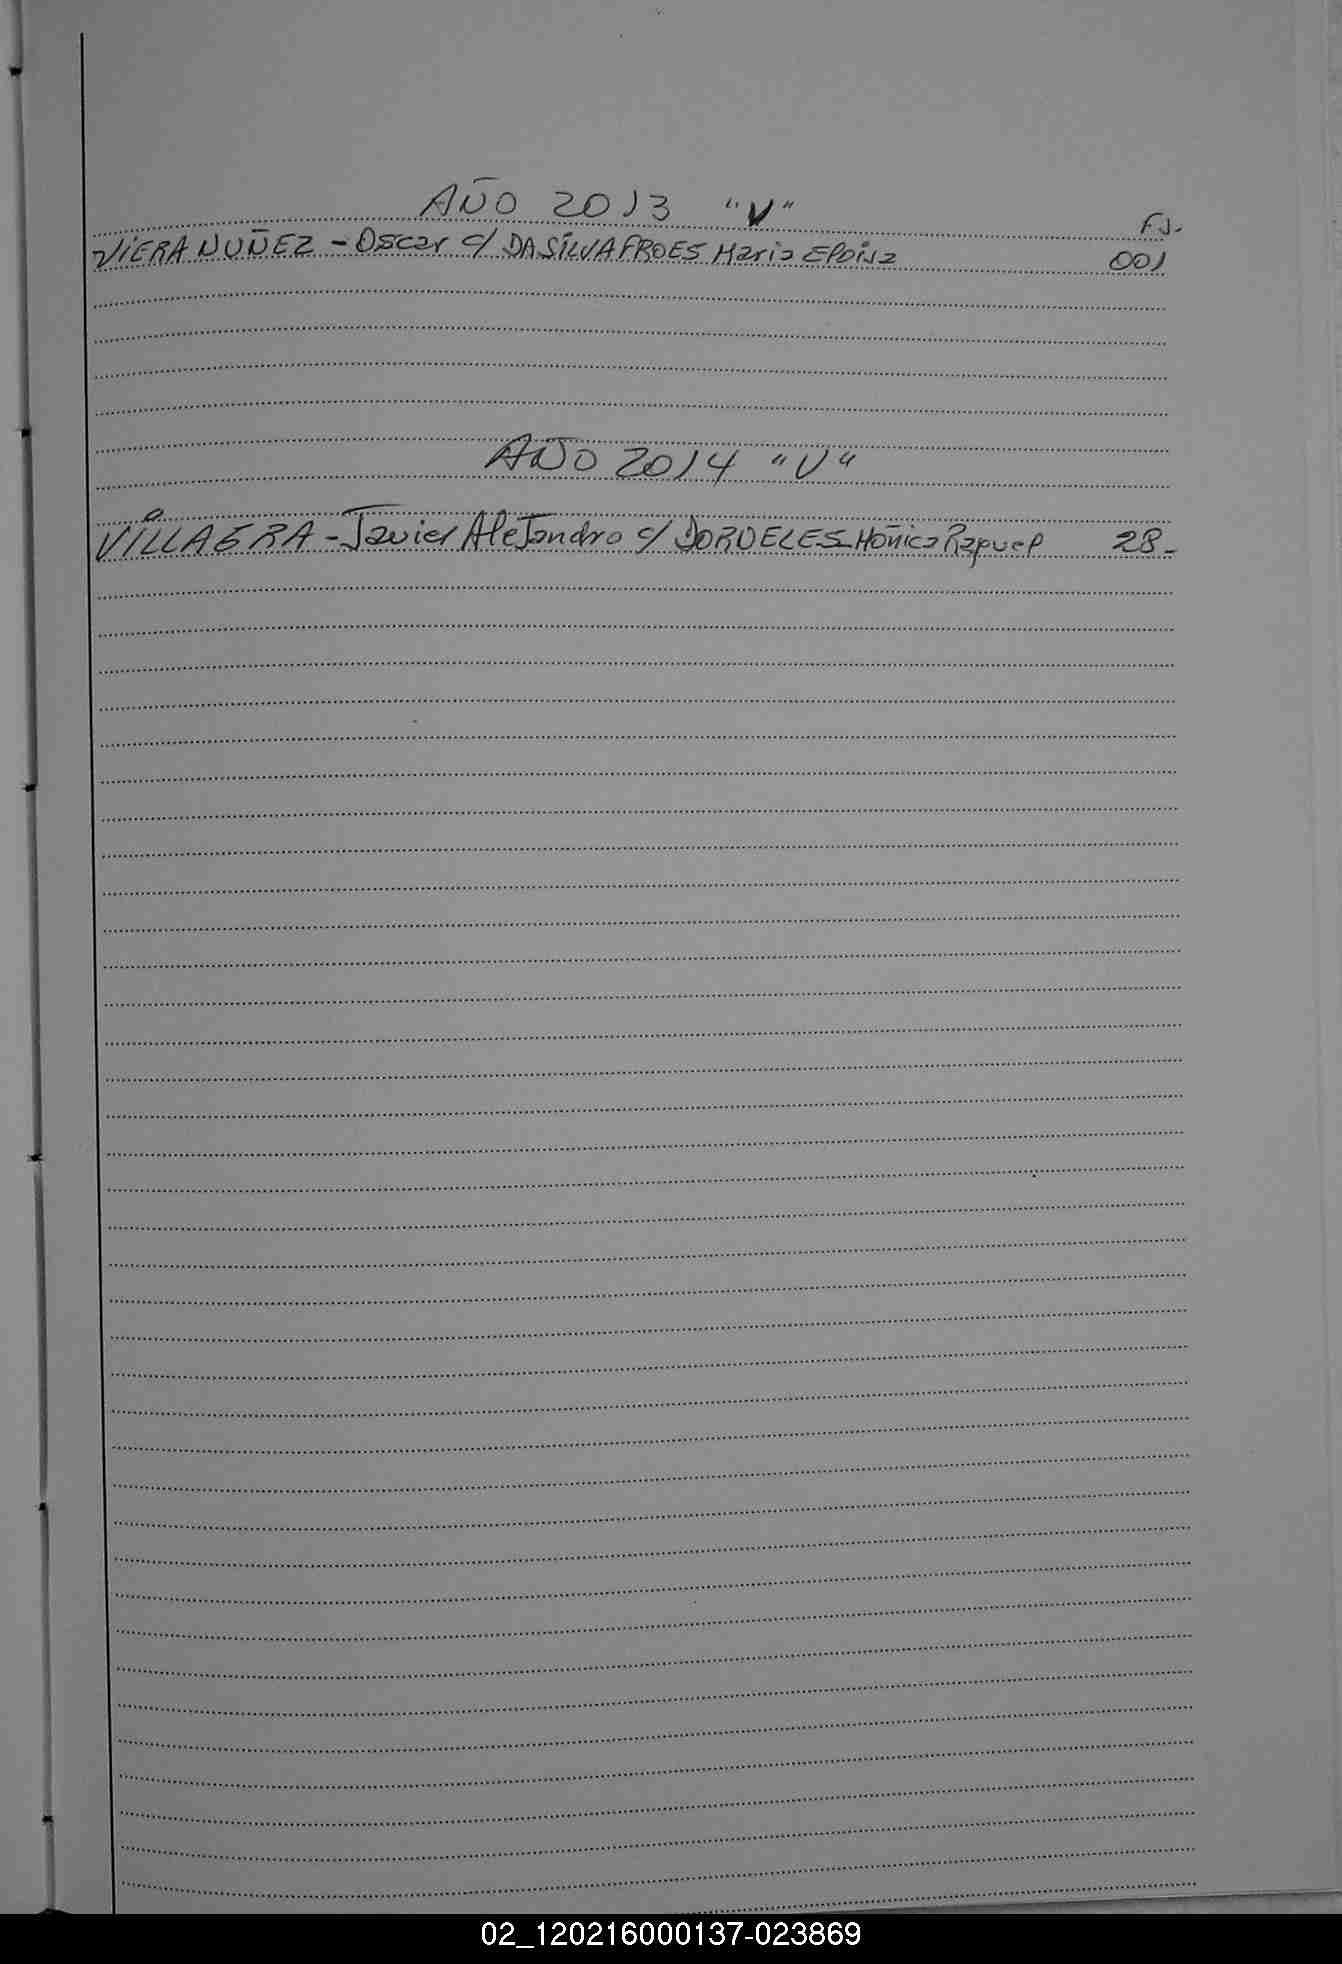 AÑO 2013 "V"
FJ.
VIERA NUÑEZ - Oscar c/ DA SILVA FROES Maria Eloisa 001
AÑO 2014 "V"
VILLAGRA - Javier Alejandro c/ DORDELES Mónica Raquel 28-
02_120216000137-023869